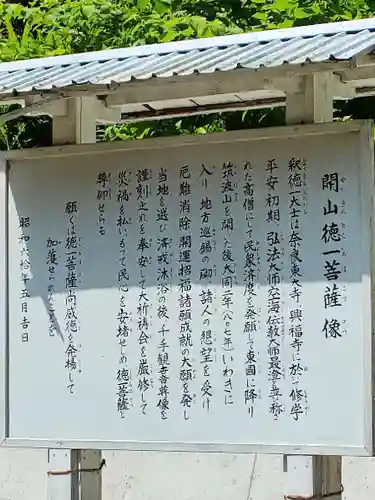 開山徳一菩薩像
釈徳一大士は奈良東大寺、興福寺に於て修学
平安初期 弘法大師空海 伝教大師最澄と並び称さ
れた高僧にて民衆済度を発願して東國に降り
筑波山を開いた後大同二年（八〇七年）いわきに
入り 地方巡錫の砌 諸人の懇望を受け
厄難消除開運招福諸願成就の大願を発し
当地を選び 斎戒沐浴の後 千手観世音尊像を
謹刻之れを奉安して大祈祷会を厳修して
災禍を払いもって民心を安堵せしめ 徳一菩薩と
尊仰さる
願くは徳一菩薩尚威徳を発揚して
加護せられんことを
昭和六拾年五月吉日